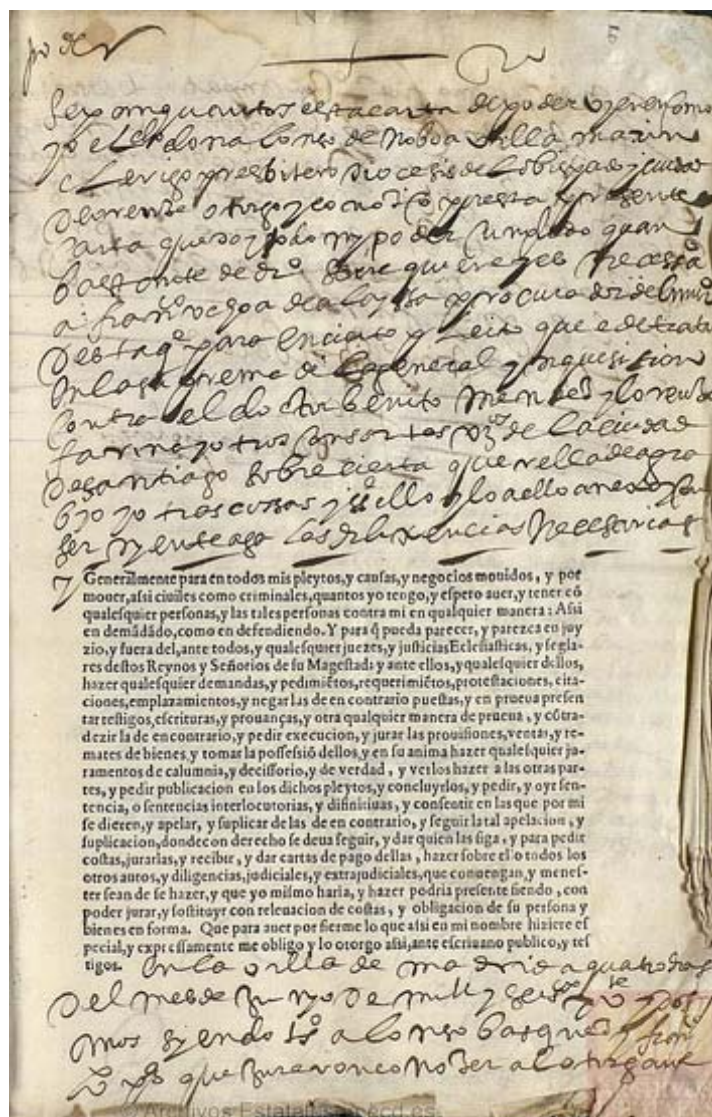 poder
5
Sepan quantos esta carta de poder vieren como
yo el Ldo don alonso de noboa villa marin
clerigo presbitero diocesis del obispado y ciudad
de orense otorgo y conozco por esta presente
carta que doy todo my poder cumplido quan
bastante de dro se requiere y es necessario
a franco de la procurador del numo
desta qe para en cierto pleito que e de tratar
en la suprema de la general ynquisicion
contra el doctor benito mendez y lorenzo
farina y otros consortes vos de la ciudad
de santiago sobre cierta querella de agra
bio y otras cossas y sre ello y lo a ello anexo
ser y en te aga las dilixencias necesarias
y Generalmente para en todos mis pleytos, y causas, y negocios mouidos, y por
mouer, assi ciuiles como criminales, quantos yo tengo, y espero auer, y tener cõ
qualesquier personas, y las tales personas contra mi en qualquier manera: Assi
en demãdãdo, como en defendiendo. Y para q̃ pueda parecer, y parezca en juy
zio, y fuera del, ante todos, y qualesquier juezes, y justicias Eclesiasticas, y segla
res destos Reynos y Señorios de su Magestad: y ante ellos, y qualesquier dellos,
hazer qualesquier demandas, y pedimiẽtos, requerimiẽtos, protestaciones, cita-
ciones, emplazamientos, y negar las de en contrario puestas, y en prueua presen
tar testigos, escrituras, y prouanças, y otra qualquier manera de prueua, y cõtra-
dezir la de en contrario, y pedir execucion, y jurar las prouisiones, ventas, y re-
mates de bienes, y tomar la possessiõ dellos, y en su anima hazer qualesquier ju-
ramentos de calumnia, y decissorio, y de verdad, y verlos hazer a las otras par-
tes, y pedir publicacion en los dichos pleytos, y concluyrlos, y pedir, y oyr sen-
tencia, o sentencias interlocutorias, y difinitiuas, y consentir en las que por mi
se dieren, y apelar, y suplicar de las de en contrario, y seguir la tal apelacion, y
suplicacion, donde con derecho se deua seguir, y dar quien las siga, y para pedir
costas, jurarlas, y recibir, y dar cartas de pago dellas, hazer sobre ello todos los
otros autos, y diligencias, judiciales, y extrajudiciales, que conuengan, y menes-
ter sean de se hazer, y que yo mismo haria, y hazer podria presente siendo, con
poder jurar, y sostituyr con releuacion de costas, y obligacion de su persona y
bienes en forma. Que para auer por fierme lo que assi en mi nombre hiziere es
pecial, y expressamente me obligo y lo otorgo assi, ante escriuano publico, y tes
tigos. En la villa de madrid a quatro dias
del mes de junyo de mill y seisos y ve y dos
anos syendo tos alonso basquez y
que juraron conozer al otorgante
© Archivos Estatales, mecd.es